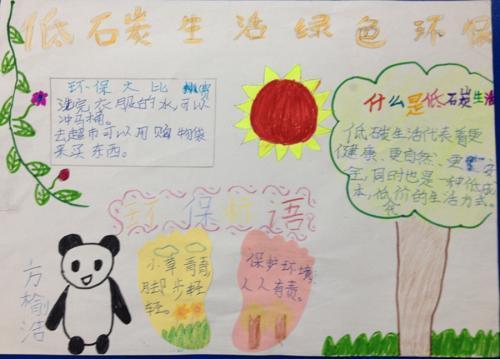 低碳生活绿色环保
环保大比
洗完衣服的水可以
冲马桶。
去超市可以用购物袋
来买东西。
什么是低碳生活
低碳生活代表着更
健康、更自然、更安
全,同时也是一种低成
本,低价的生活方式。
环保标语
小草青青,
脚步轻
轻。
保护环境,
人人有责。
方榆洁